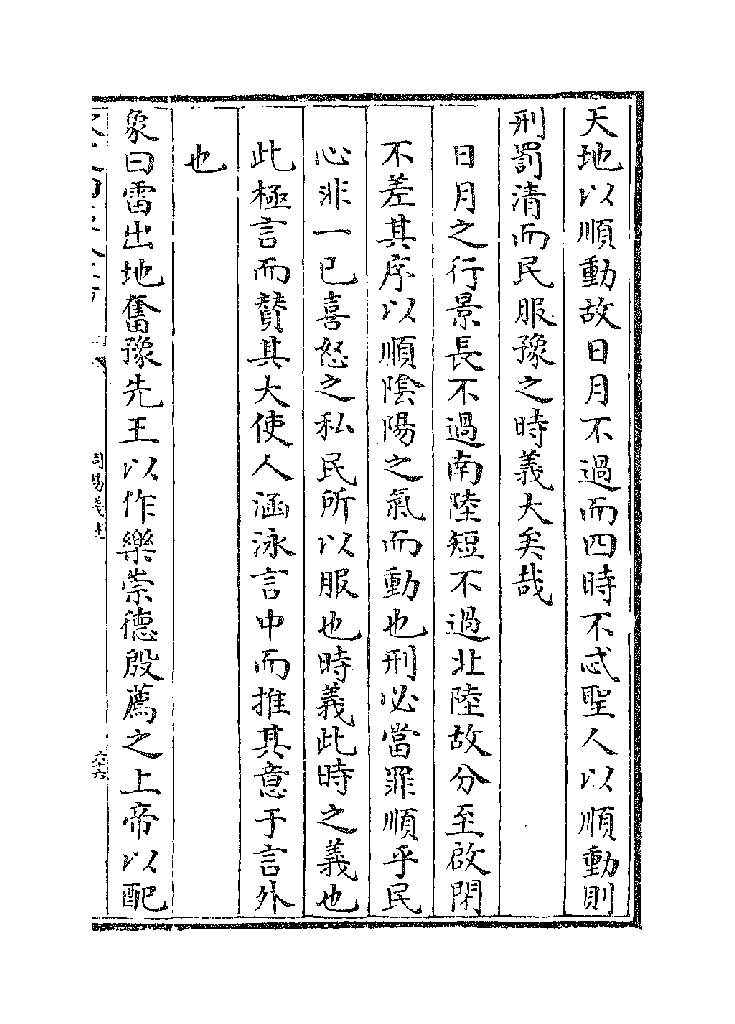 天地以順動故日月不過而四時不忒聖人以順動則
刑罰清而民服豫之時義大矣哉
日月之行景長不過南陸短不過北陸故分至啟閉
不差其序以順隂陽之氣而動也刑必當罪順乎民
心非一已喜怒之私民所以服也時義此時之義也
此極言而贊其大使人涵泳言中而推其意于言外
也
象曰雷出地奮豫先王以作樂崇德殷薦之上帝以配